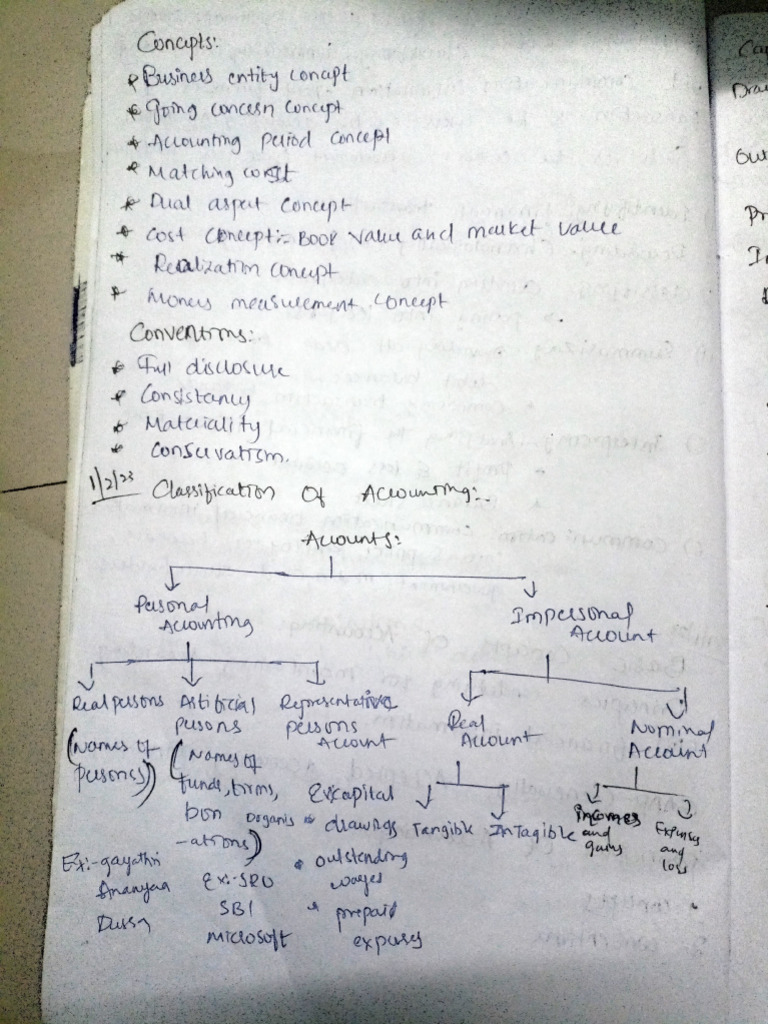 Concepts:
* Business entity concept
* Going concern concept
* Accounting period concept
* Matching
* Dual aspect concept
* Cost concept:- Book value and market value
* Realization concept
* Money measurement concept
Conventions:
* Full disclosure
* Consistancy
* Materiality
* Conservatism.
1/2/23 Classification Of Accounting:-
Accounts:
Personal Accounting
Impersonal Account
Real persons
(Names of persons)
Ex:- gayathri
Ananyaa
Durga
Artificial persons
(Names of funds, firms,
Organis
-ations)
Ex:- SRU
SBI
Microsoft
Representative persons Account
Ex: capital
* drawings
* outstanding wages
* prepaid expenses
Real Account
Tangible
InTagible
Nominal Account
Incomes and gains
Expenses and loss
Dra
Out
Pr